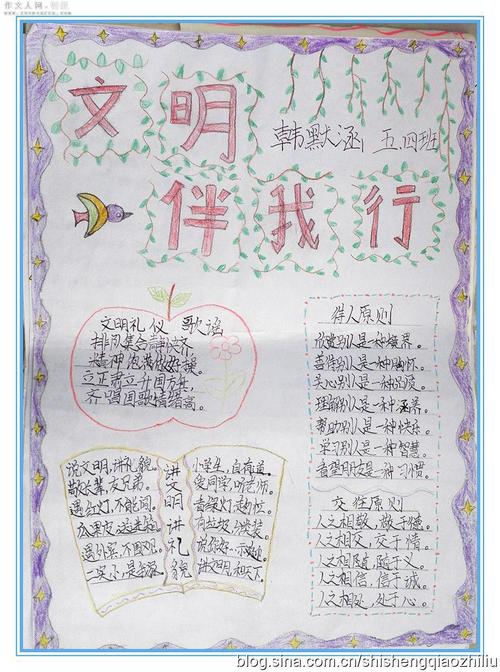 作文人网
文明
韩默涵 五.四班
伴我行
文明礼仪 歌谣
排队集合静快齐
精神饱满做好操
立正肃立升国旗
齐唱国歌情绪高。
说文明,讲礼貌。
敬长辈,友兄弟。
遇红灯,不能闯。
瓜果皮
遇外宾,不
讲文明讲礼貌
小学生,自有道
爱同学,听老师。
有垃圾
讲文明,和天下
待人原则
欣赏别人是一种境界。
善待别人是一种胸怀。
关心别人是一种品质。
理解别人是一种涵养。
帮助别人是一种快乐。
学习别人是一种智慧。
是一种习惯。
交往原则
人之相敬,敬于德。
人之相交,交于情。
人之相随,随于义。
人之相信,信于诚。
人之相处,处于心。
blog.sina.com.cn/shishengqiaozhiliu